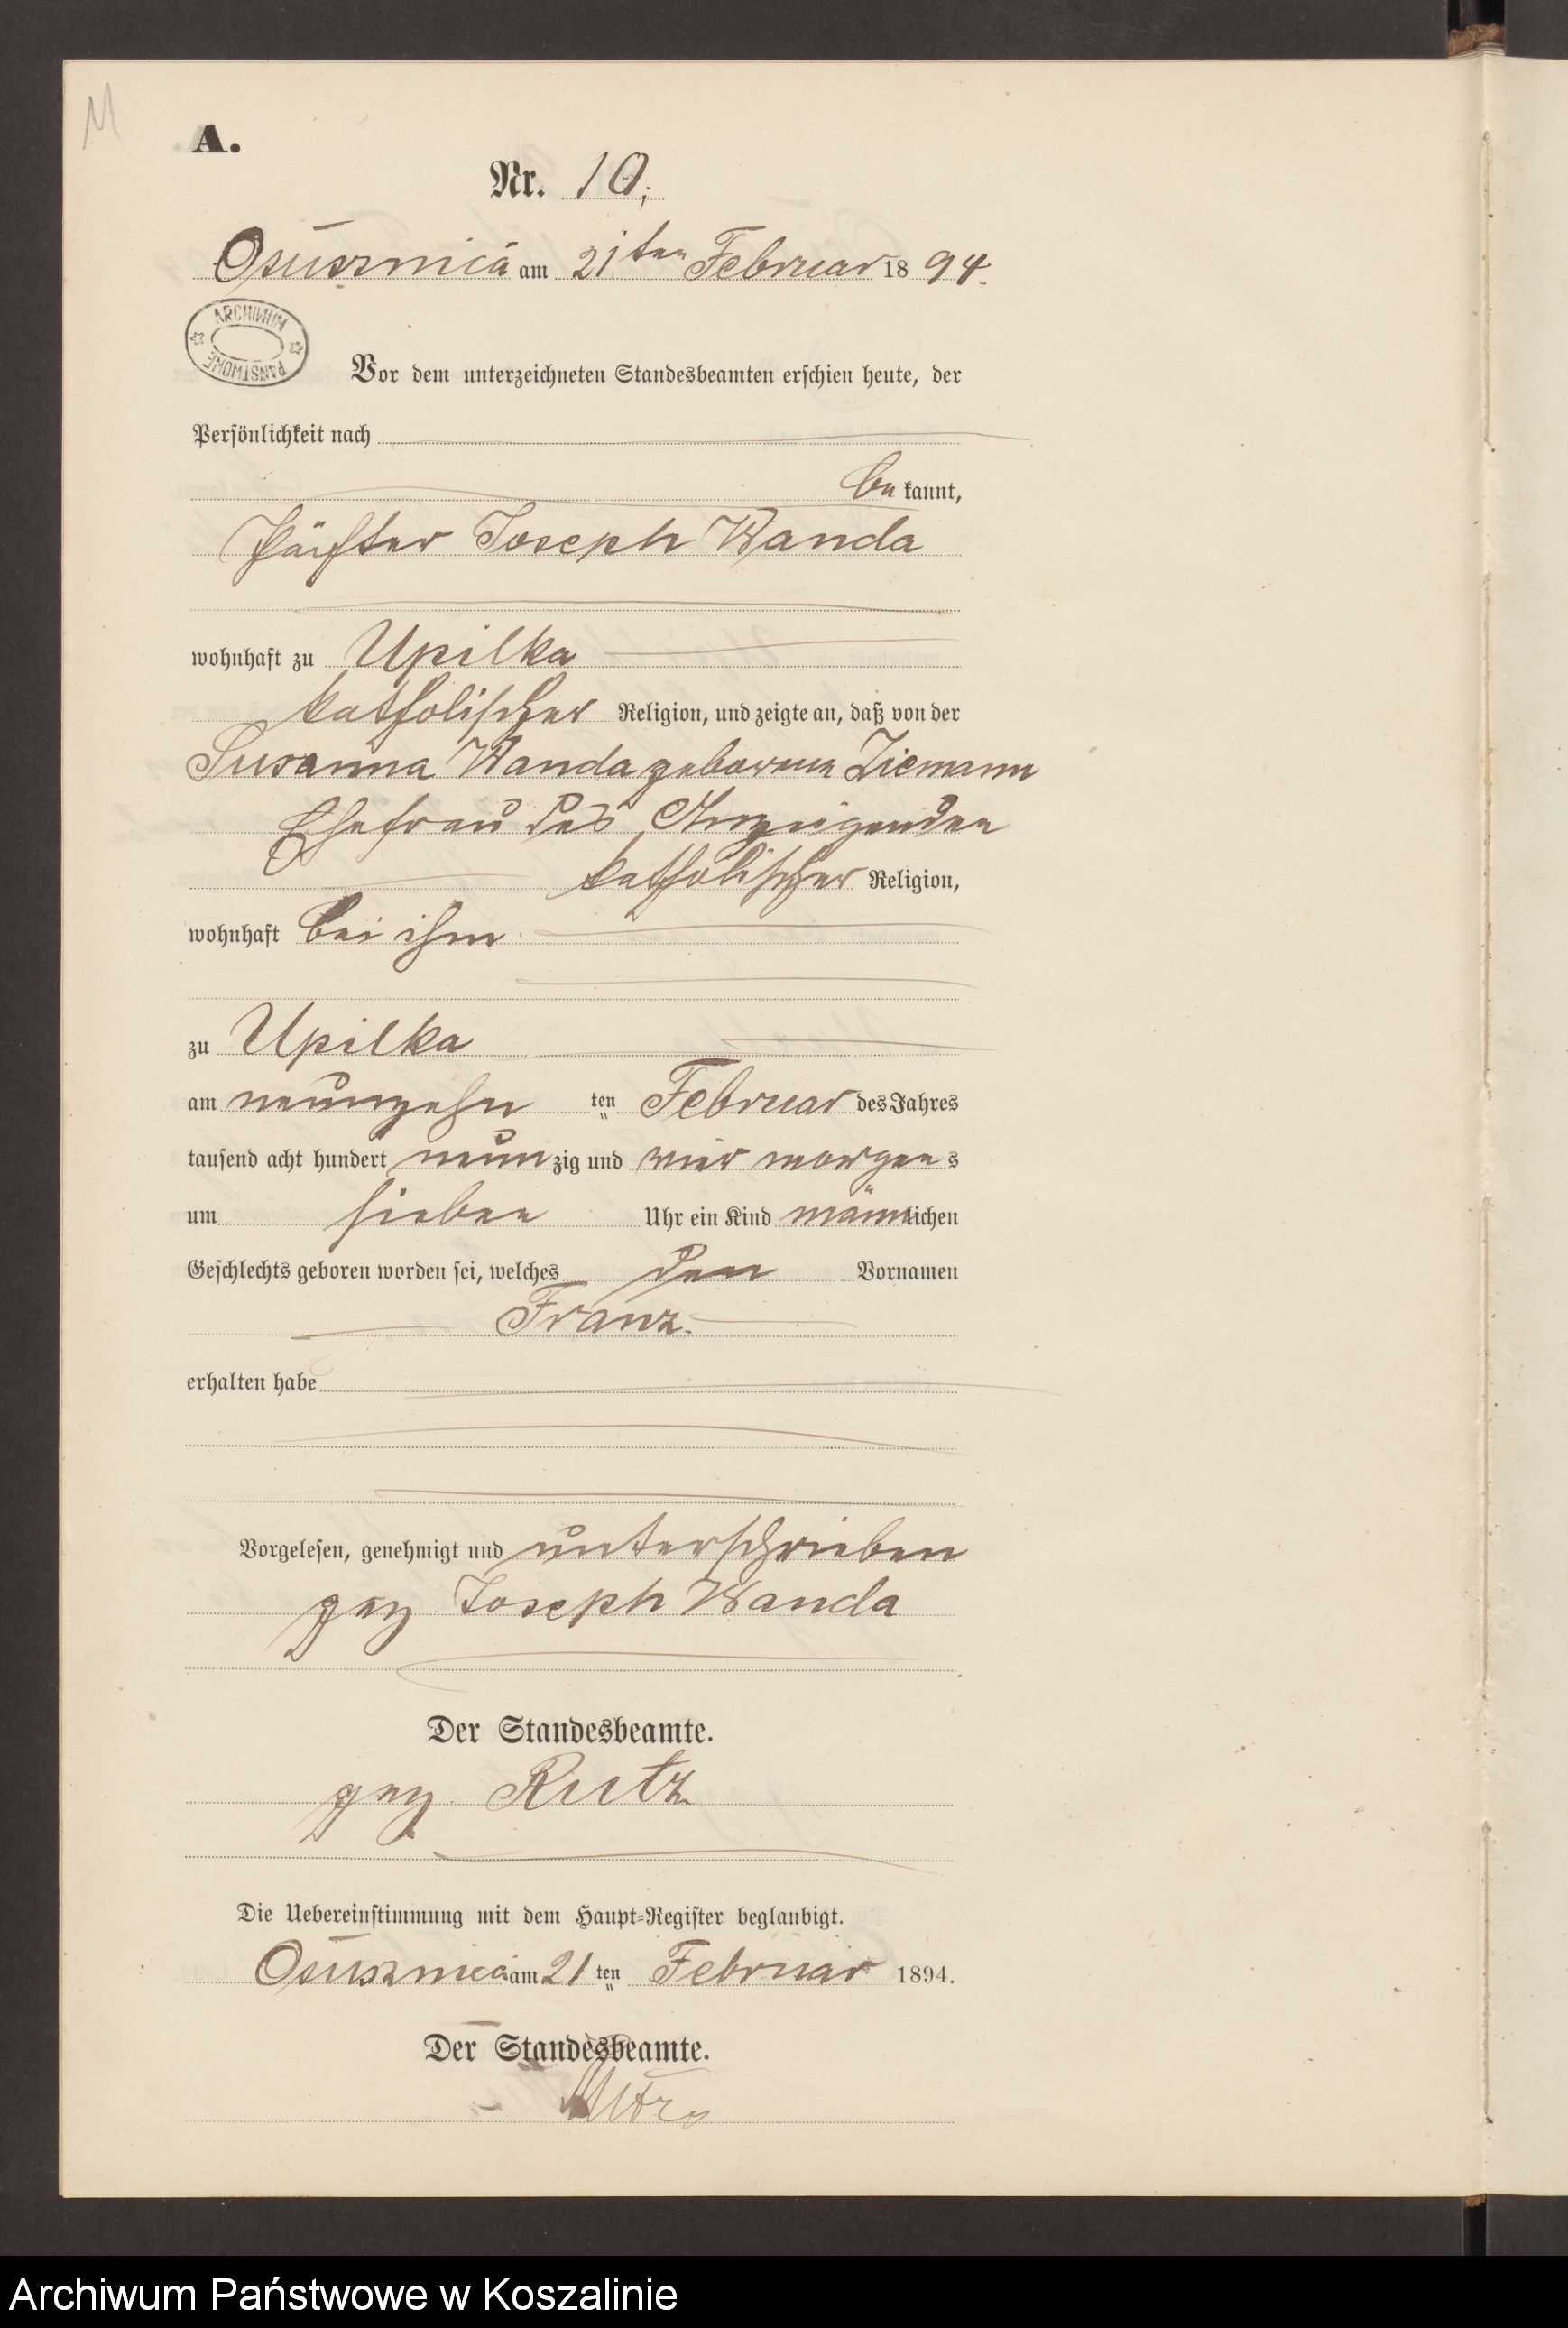 M
A.
Nr. 10.
Osusznica am 21ten Februar 1894.
ARCHIWUM PAŃSTWOWE
Vor dem unterzeichneten Standesbeamten erschien heute, der
Persönlichkeit nach
bekannt,
Joseph Wanda
wohnhaft zu Upilka
katholischer Religion, und zeigte an, daß von der
Susanna Wanda geborene Ziemann
Ehefrau des Anzeigenden
katholischer Religion,
wohnhaft bei ihm
zu Upilka
am neunzehn ten Februar des Jahres
tausend acht hundert neunzig und vier morgens
um sieben Uhr ein Kind männlichen
Geschlechts geboren worden sei, welches den Vornamen
Franz.
erhalten habe
Vorgelesen, genehmigt und unterschrieben
gez Joseph Wanda
Der Standesbeamte.
gez. Rutz
Die Uebereinstimmung mit dem Haupt-Register beglaubigt.
Osusznica am 21 ten Februar 1894.
Der Standesbeamte.
Archiwum Państwowe w Koszalinie